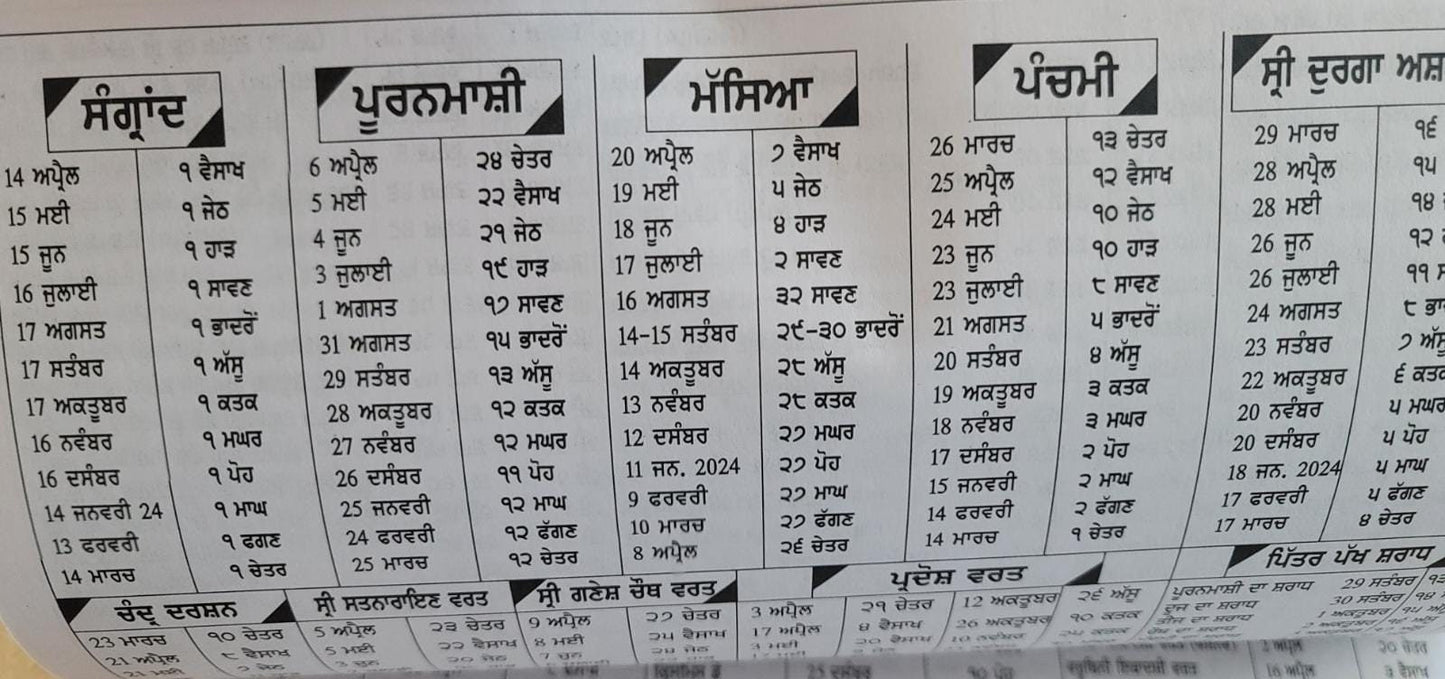 ਸੰਗ੍ਰਾਂਦ
14 ਅਪ੍ਰੈਲ ੧ ਵੈਸਾਖ
15 ਮਈ ੧ ਜੇਠ
15 ਜੂਨ ੧ ਹਾੜ
16 ਜੁਲਾਈ ੧ ਸਾਵਣ
17 ਅਗਸਤ ੧ ਭਾਦਰੋਂ
17 ਸਤੰਬਰ ੧ ਅੱਸੂ
17 ਅਕਤੂਬਰ ੧ ਕਤਕ
16 ਨਵੰਬਰ ੧ ਮਘਰ
16 ਦਸੰਬਰ ੧ ਪੋਹ
14 ਜਨਵਰੀ 24 ੧ ਮਾਘ
13 ਫਰਵਰੀ ੧ ਫਗਣ
14 ਮਾਰਚ ੧ ਚੇਤਰ
ਪੂਰਨਮਾਸ਼ੀ
6 ਅਪ੍ਰੈਲ ੨੪ ਚੇਤਰ
5 ਮਈ ੨੨ ਵੈਸਾਖ
4 ਜੂਨ ੨੧ ਜੇਠ
3 ਜੁਲਾਈ ੧੯ ਹਾੜ
1 ਅਗਸਤ ੧੭ ਸਾਵਣ
31 ਅਗਸਤ ੧੫ ਭਾਦਰੋਂ
29 ਸਤੰਬਰ ੧੩ ਅੱਸੂ
28 ਅਕਤੂਬਰ ੧੨ ਕਤਕ
27 ਨਵੰਬਰ ੧੨ ਮਘਰ
26 ਦਸੰਬਰ ੧੧ ਪੋਹ
25 ਜਨਵਰੀ ੧੨ ਮਾਘ
24 ਫਰਵਰੀ ੧੨ ਫੱਗਣ
25 ਮਾਰਚ ੧੨ ਚੇਤਰ
ਮੱਸਿਆ
20 ਅਪ੍ਰੈਲ ੭ ਵੈਸਾਖ
19 ਮਈ ੫ ਜੇਠ
18 ਜੂਨ ੪ ਹਾੜ
17 ਜੁਲਾਈ ੨ ਸਾਵਣ
16 ਅਗਸਤ ੩੨ ਸਾਵਣ
14-15 ਸਤੰਬਰ ੨੯-੩੦ ਭਾਦਰੋਂ
14 ਅਕਤੂਬਰ ੨੮ ਅੱਸੂ
13 ਨਵੰਬਰ ੨੮ ਕਤਕ
12 ਦਸੰਬਰ ੨੭ ਮਘਰ
11 ਜਨ. 2024 ੨੭ ਪੋਹ
9 ਫਰਵਰੀ ੨੭ ਮਾਘ
10 ਮਾਰਚ ੨੭ ਫੱਗਣ
8 ਅਪ੍ਰੈਲ ੨੬ ਚੇਤਰ
ਪੰਚਮੀ
26 ਮਾਰਚ ੧੩ ਚੇਤਰ
25 ਅਪ੍ਰੈਲ ੧੨ ਵੈਸਾਖ
24 ਮਈ ੧੦ ਜੇਠ
23 ਜੂਨ ੧੦ ਹਾੜ
23 ਜੁਲਾਈ ੮ ਸਾਵਣ
21 ਅਗਸਤ ੫ ਭਾਦਰੋਂ
20 ਸਤੰਬਰ ੪ ਅੱਸੂ
19 ਅਕਤੂਬਰ ੩ ਕਤਕ
18 ਨਵੰਬਰ ੩ ਮਘਰ
17 ਦਸੰਬਰ ੨ ਪੋਹ
15 ਜਨਵਰੀ ੨ ਮਾਘ
14 ਫਰਵਰੀ ੨ ਫੱਗਣ
14 ਮਾਰਚ ੧ ਚੇਤਰ
ਸ੍ਰੀ ਦੁਰਗਾ
29 ਮਾਰਚ ੧੬
28 ਅਪ੍ਰੈਲ ੧੫
28 ਮਈ ੧੪
26 ਜੂਨ ੧੨
26 ਜੁਲਾਈ ੧੧
24 ਅਗਸਤ ੮
23 ਸਤੰਬਰ ੭ ਅੱਸੂ
22 ਅਕਤੂਬਰ ੬ ਕਤਕ
20 ਨਵੰਬਰ ੫ ਮਘਰ
20 ਦਸੰਬਰ ੫ ਪੋਹ
18 ਜਨ. 2024 ੫ ਮਾਘ
17 ਫਰਵਰੀ ੫ ਫੱਗਣ
17 ਮਾਰਚ ੪ ਚੇਤਰ
ਚੰਦ੍ਰ ਦਰਸ਼ਨ
23 ਮਾਰਚ ੧੦ ਚੇਤਰ
21 ਅਪ੍ਰੈਲ ੮ ਵੈਸਾਖ
21 ਮਈ
ਸ੍ਰੀ ਸਤਨਾਰਾਇਣ ਵਰਤ
5 ਅਪ੍ਰੈਲ ੨੩ ਚੇਤਰ
5 ਮਈ ੨੨ ਵੈਸਾਖ
3 ਜੂਨ
ਸ੍ਰੀ ਗਣੇਸ਼ ਚੌਥ ਵਰਤ
9 ਅਪ੍ਰੈਲ ੨੭ ਚੇਤਰ
8 ਮਈ ੨੫ ਵੈਸਾਖ
7 ਜੂਨ
ਪ੍ਰਦੋਸ਼ ਵਰਤ
3 ਅਪ੍ਰੈਲ ੨੧ ਚੇਤਰ 12 ਅਕਤੂਬਰ ੨੬ ਅੱਸੂ
17 ਅਪ੍ਰੈਲ ੪ ਵੈਸਾਖ 26 ਅਕਤੂਬਰ ੧੦ ਕਤਕ
3 ਮਈ ੨੦ ਵੈਸਾਖ
ਪਿੱਤਰ ਪੱਖ ਸ਼ਰਾਧ
ਪੂਰਨਮਾਸ਼ੀ ਦਾ ਸ਼ਰਾਧ 29 ਸਤੰਬਰ ੧੩
ਦੂਜ ਦਾ ਸ਼ਰਾਧ 30 ਸਤੰਬਰ ੧੪
ਤੀਜ ਦਾ ਸ਼ਰਾਧ 1 ਅਕਤੂਬਰ ੧੫
25 ਦਸੰਬਰ
੧੦ ਪੋਹ
੨੦ ਚੇਤਰ
16 ਅਪ੍ਰੈਲ ੩ ਵੈਸਾਖ